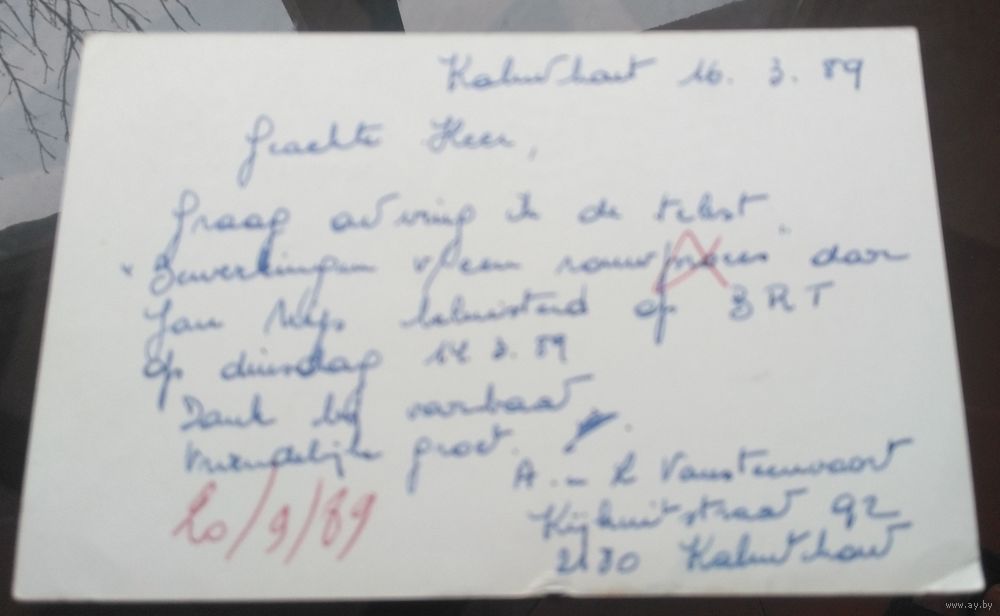 Kalmthout 16. 3. 89
Geachte Heer,
Graag ontving ik de tekst
"Bewerkingen v/een rouwproces" door
Jan beluisterd op BRT
op dinsdag 14 3. 89
Dank bij voorbaat,
Vriendelijke groet.
A. - L Vansteenvoort
Kijkuitstraat 92
2180 Kalmthout
20/9/89
www.ay.by